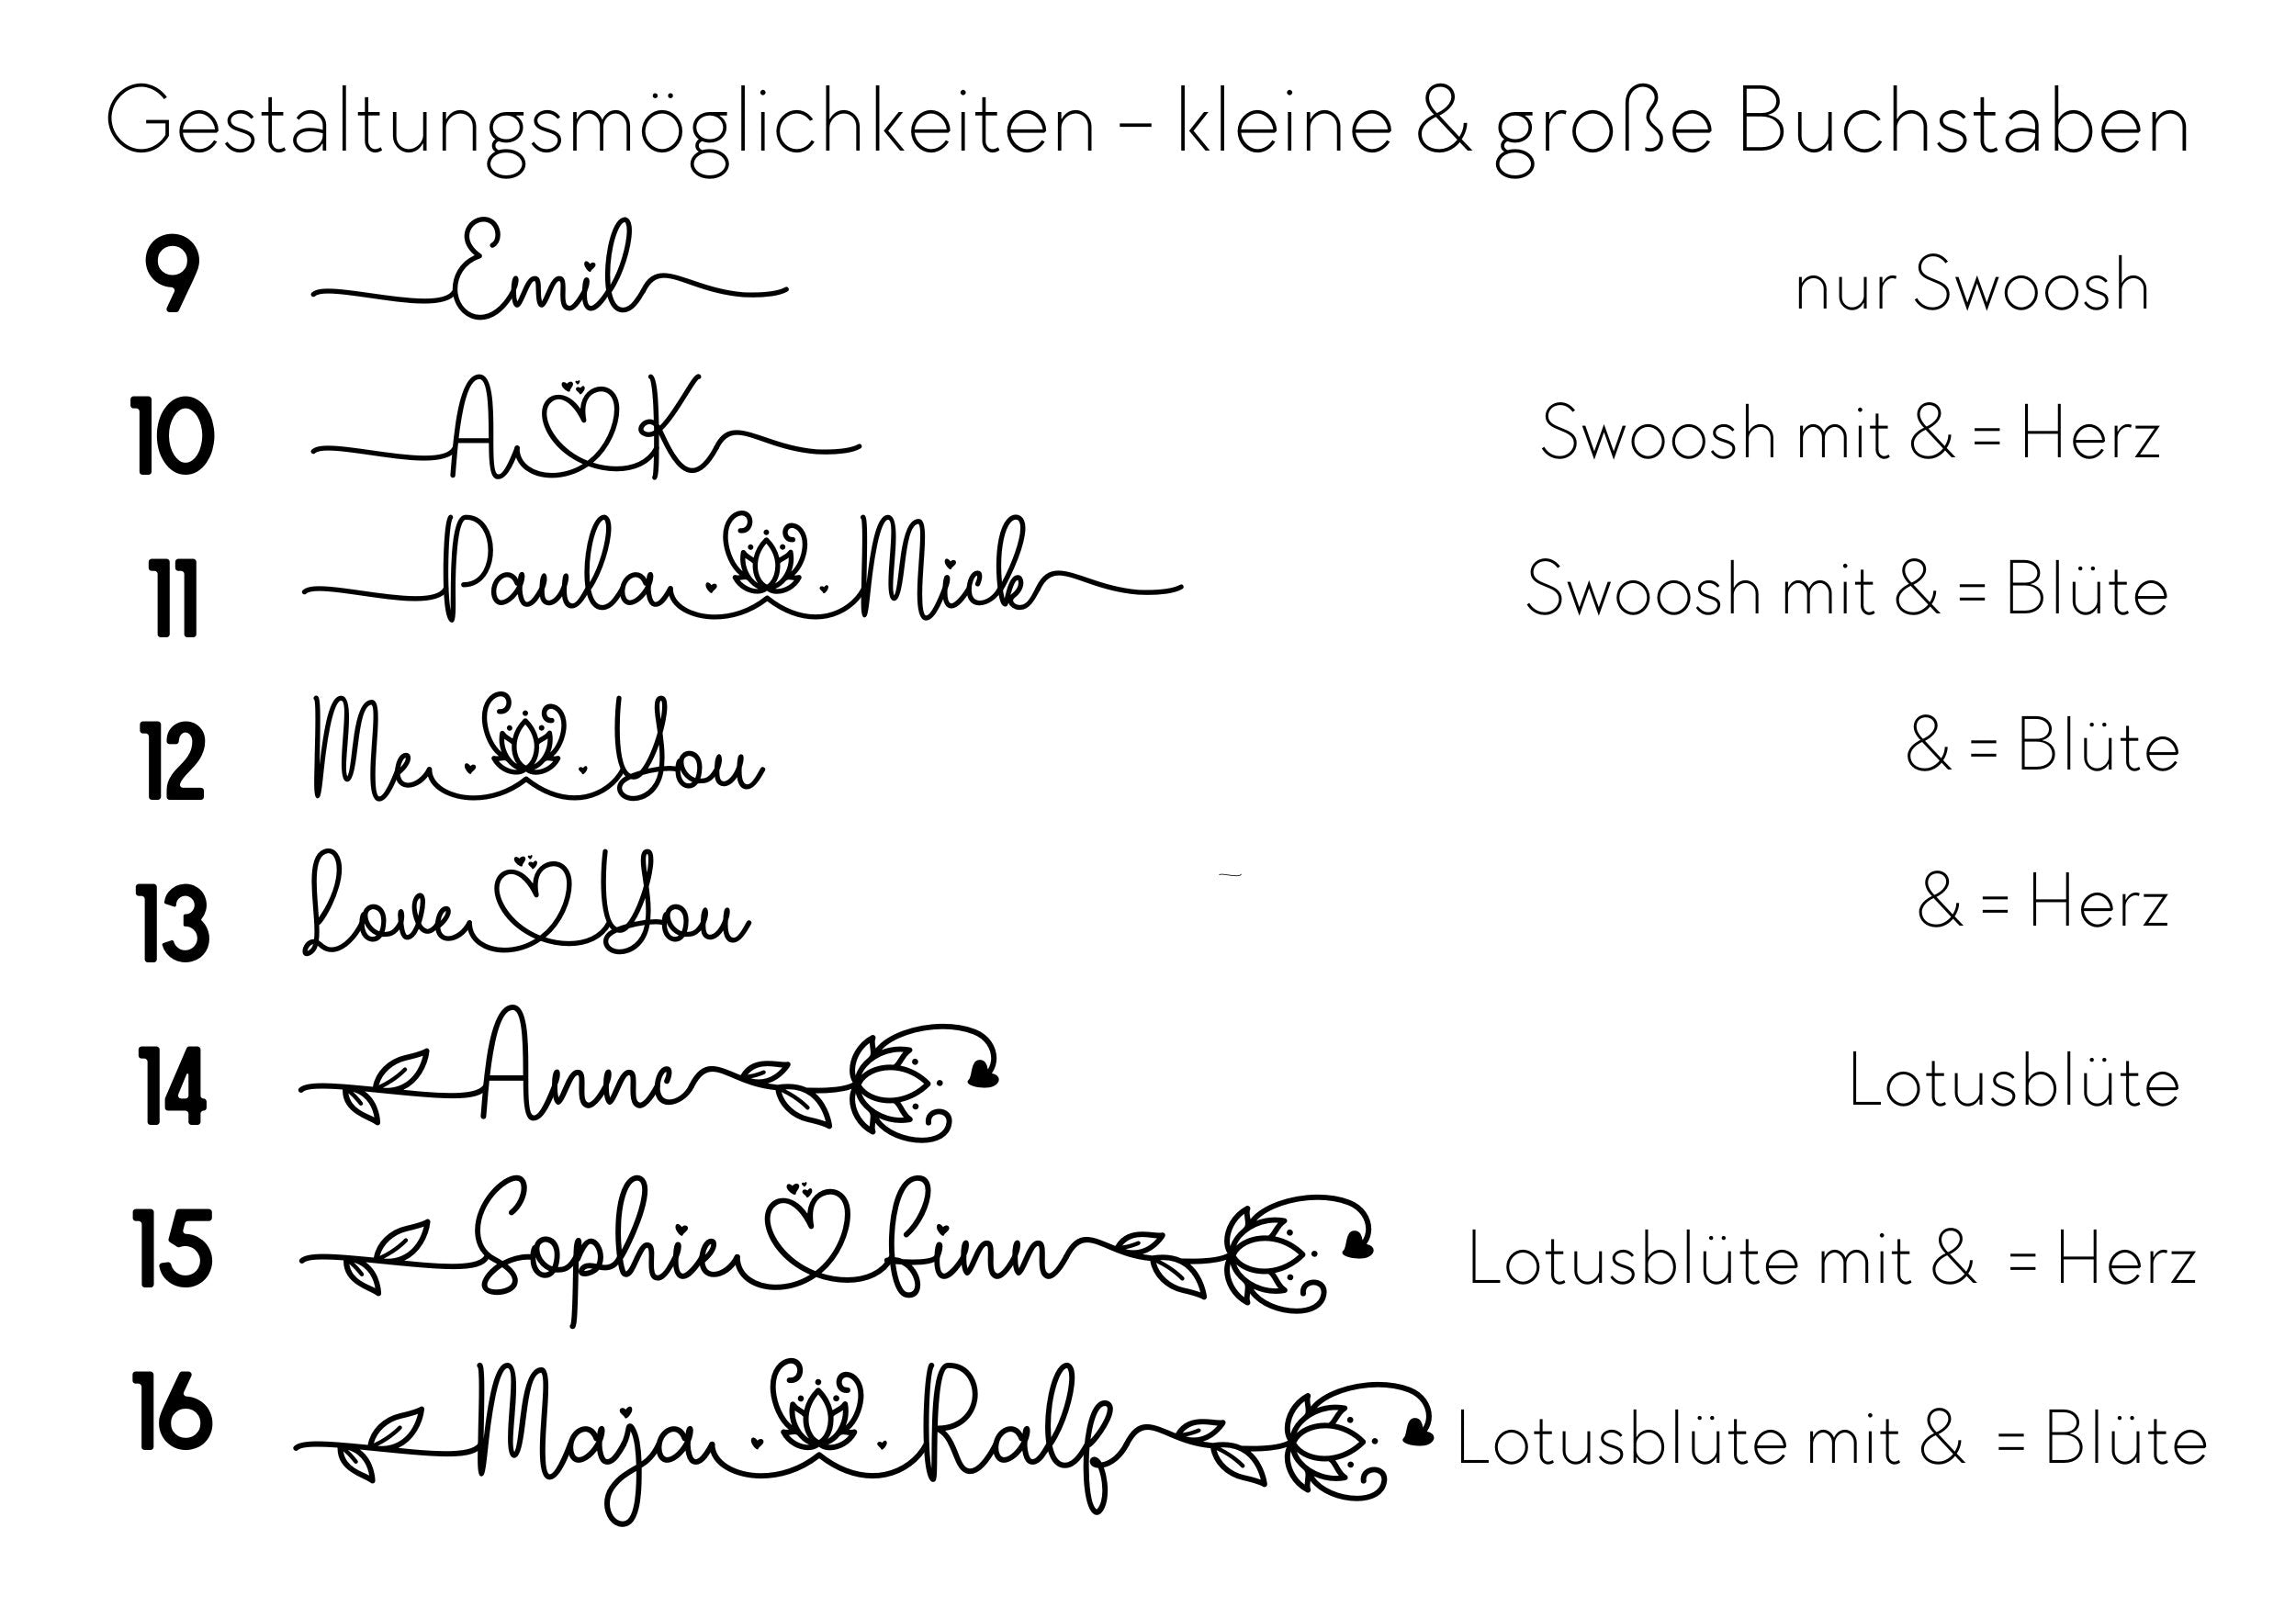 Gestaltungsmöglichkeiten – kleine & große Buchstaben
9 Emil nur Swoosh
10 A K Swoosh mit & = Herz
11 Paula Mick Swoosh mit & = Blüte
12 Me You & = Blüte
13 Love You & = Herz
14 Anna Lotusblüte
15 Sophie Finn Lotusblüte mit & = Herz
16 Maja Ralf Lotusblüte mit & = Blüte